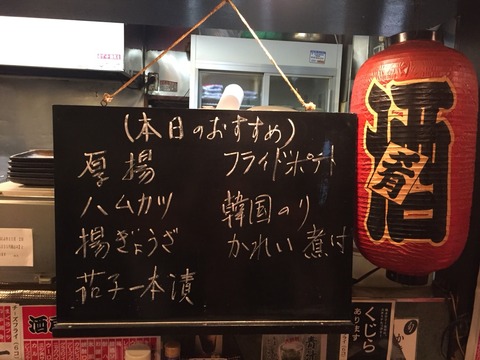 (本日のおすすめ)
厚揚
ハムカツ
揚ぎょうざ
茄子一本漬
フライドポテト
韓国のり
かれい煮付
酒肴
くじら
あります